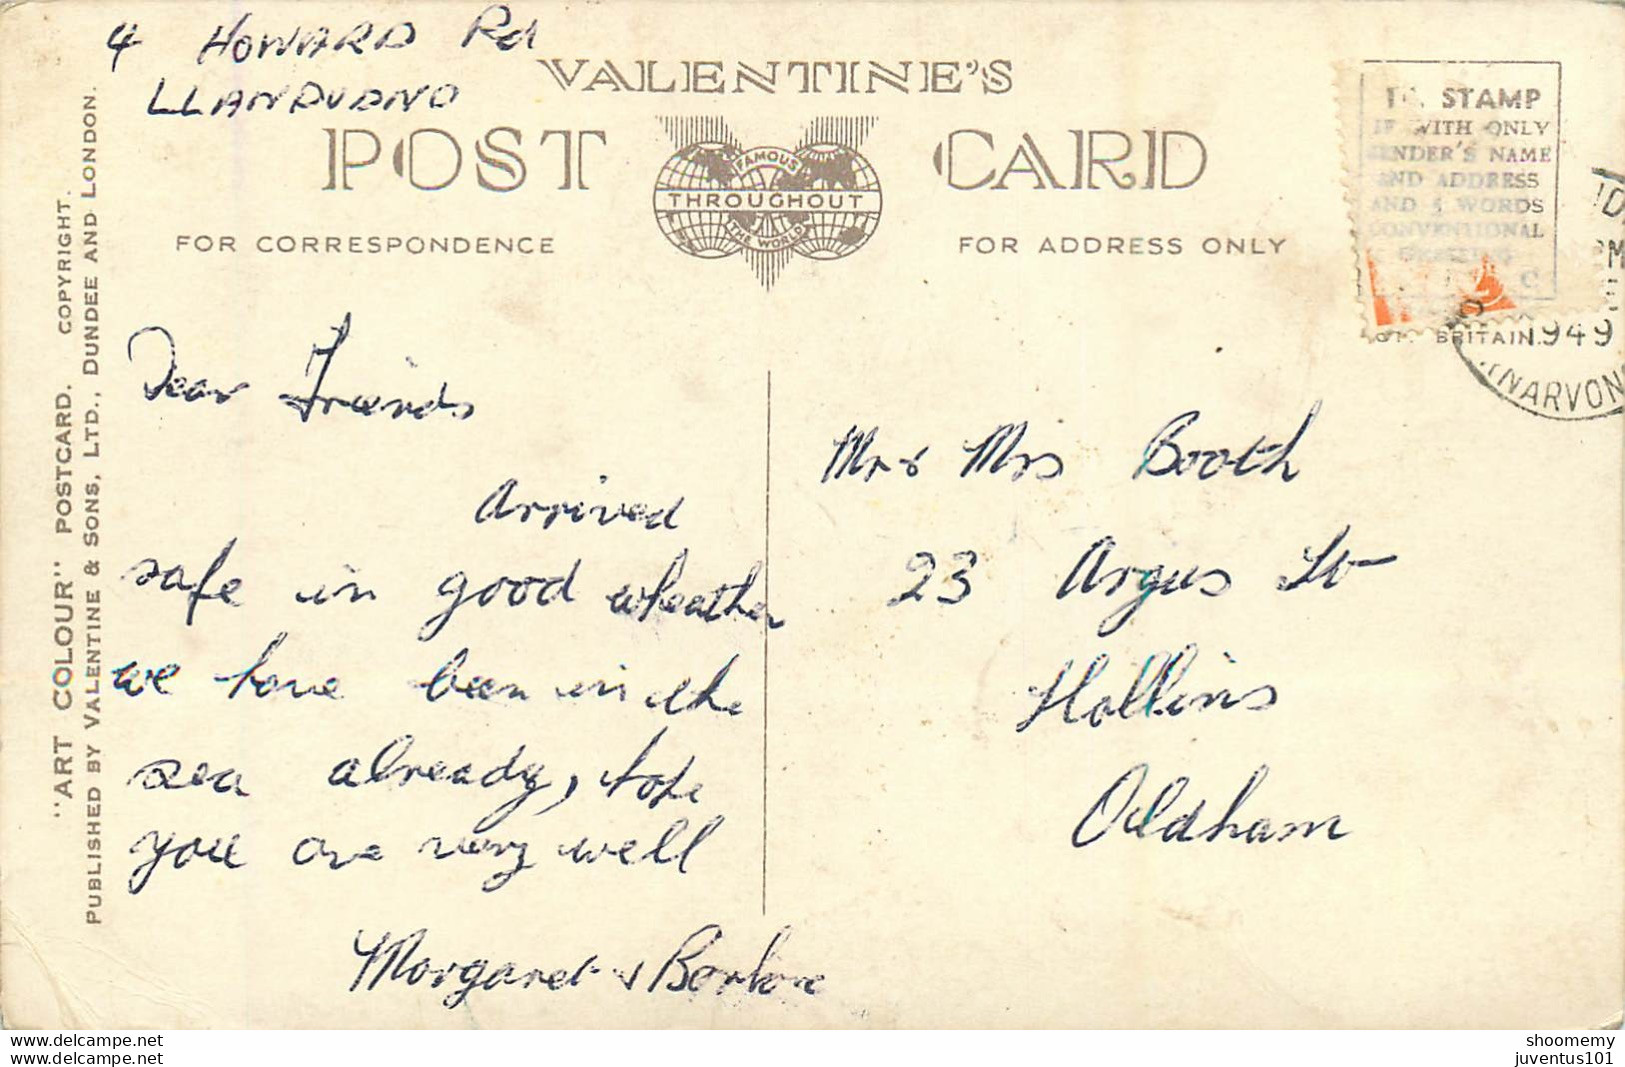 4 HOWARD Rd
LLANDUDNO
VALENTINE'S
POST CARD
FAMOUS
THROUGHOUT
THE WORLD
FOR CORRESPONDENCE
FOR ADDRESS ONLY
"ART COLOUR" POSTCARD. COPYRIGHT.
PUBLISHED BY VALENTINE & SONS, LTD., DUNDEE AND LONDON.
STAMP
IF WITH ONLY
SENDER'S NAME
AND ADDRESS
AND 5 WORDS
CONVENTIONAL
GREETING
BRITAIN.
1949
NARVON
Dear Friends
Arrived
safe in good wheather
we have been in the
sea already, hope
you are very well
Margaret &
Mr & Mrs Booth
23 Argus St
Hollins
Oldham
www.delcampe.net
www.delcampe.net
shoomemy
juventus101